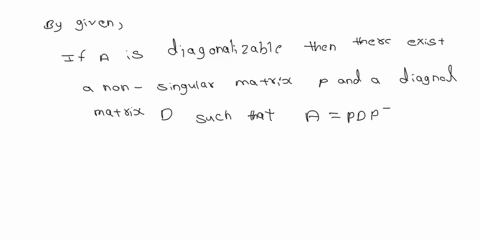 By given,
If A is diagonalizable then there exist
a non-singular matrix P and a diagnal
matrix D such that A = PDP⁻